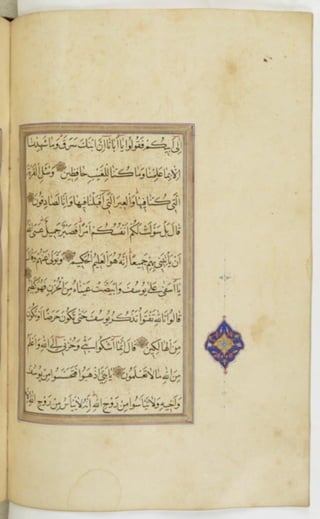 إلى أبيكم فقولوا يا أبانا إن ابنك سرق وما شهدنا
إلا بما علمنا وما كنا للغيب حافظين وسئل القرية
التي كنا فيها والعير التي أقبلنا فيها وإنا لصادقون
قال بل سولت لكم أنفسكم أمرا فصبر جميل عسى الله
أن يأتيني بهم جميعا إنه هو العليم الحكيم وتولى عنهم وقال
يا أسفى على يوسف وابيضت عيناه من الحزن فهو كظيم
قالوا تالله تفتؤا تذكر يوسف حتى تكون حرضا أو تكون
من الهالكين قال إنما أشكوا بثي وحزني إلى الله وأعلم
من الله ما لا تعلمون يا بني اذهبوا فتحسسوا من يوسف
وأخيه ولا تيأسوا من روح الله إنه لا ييأس من روح الله إلا